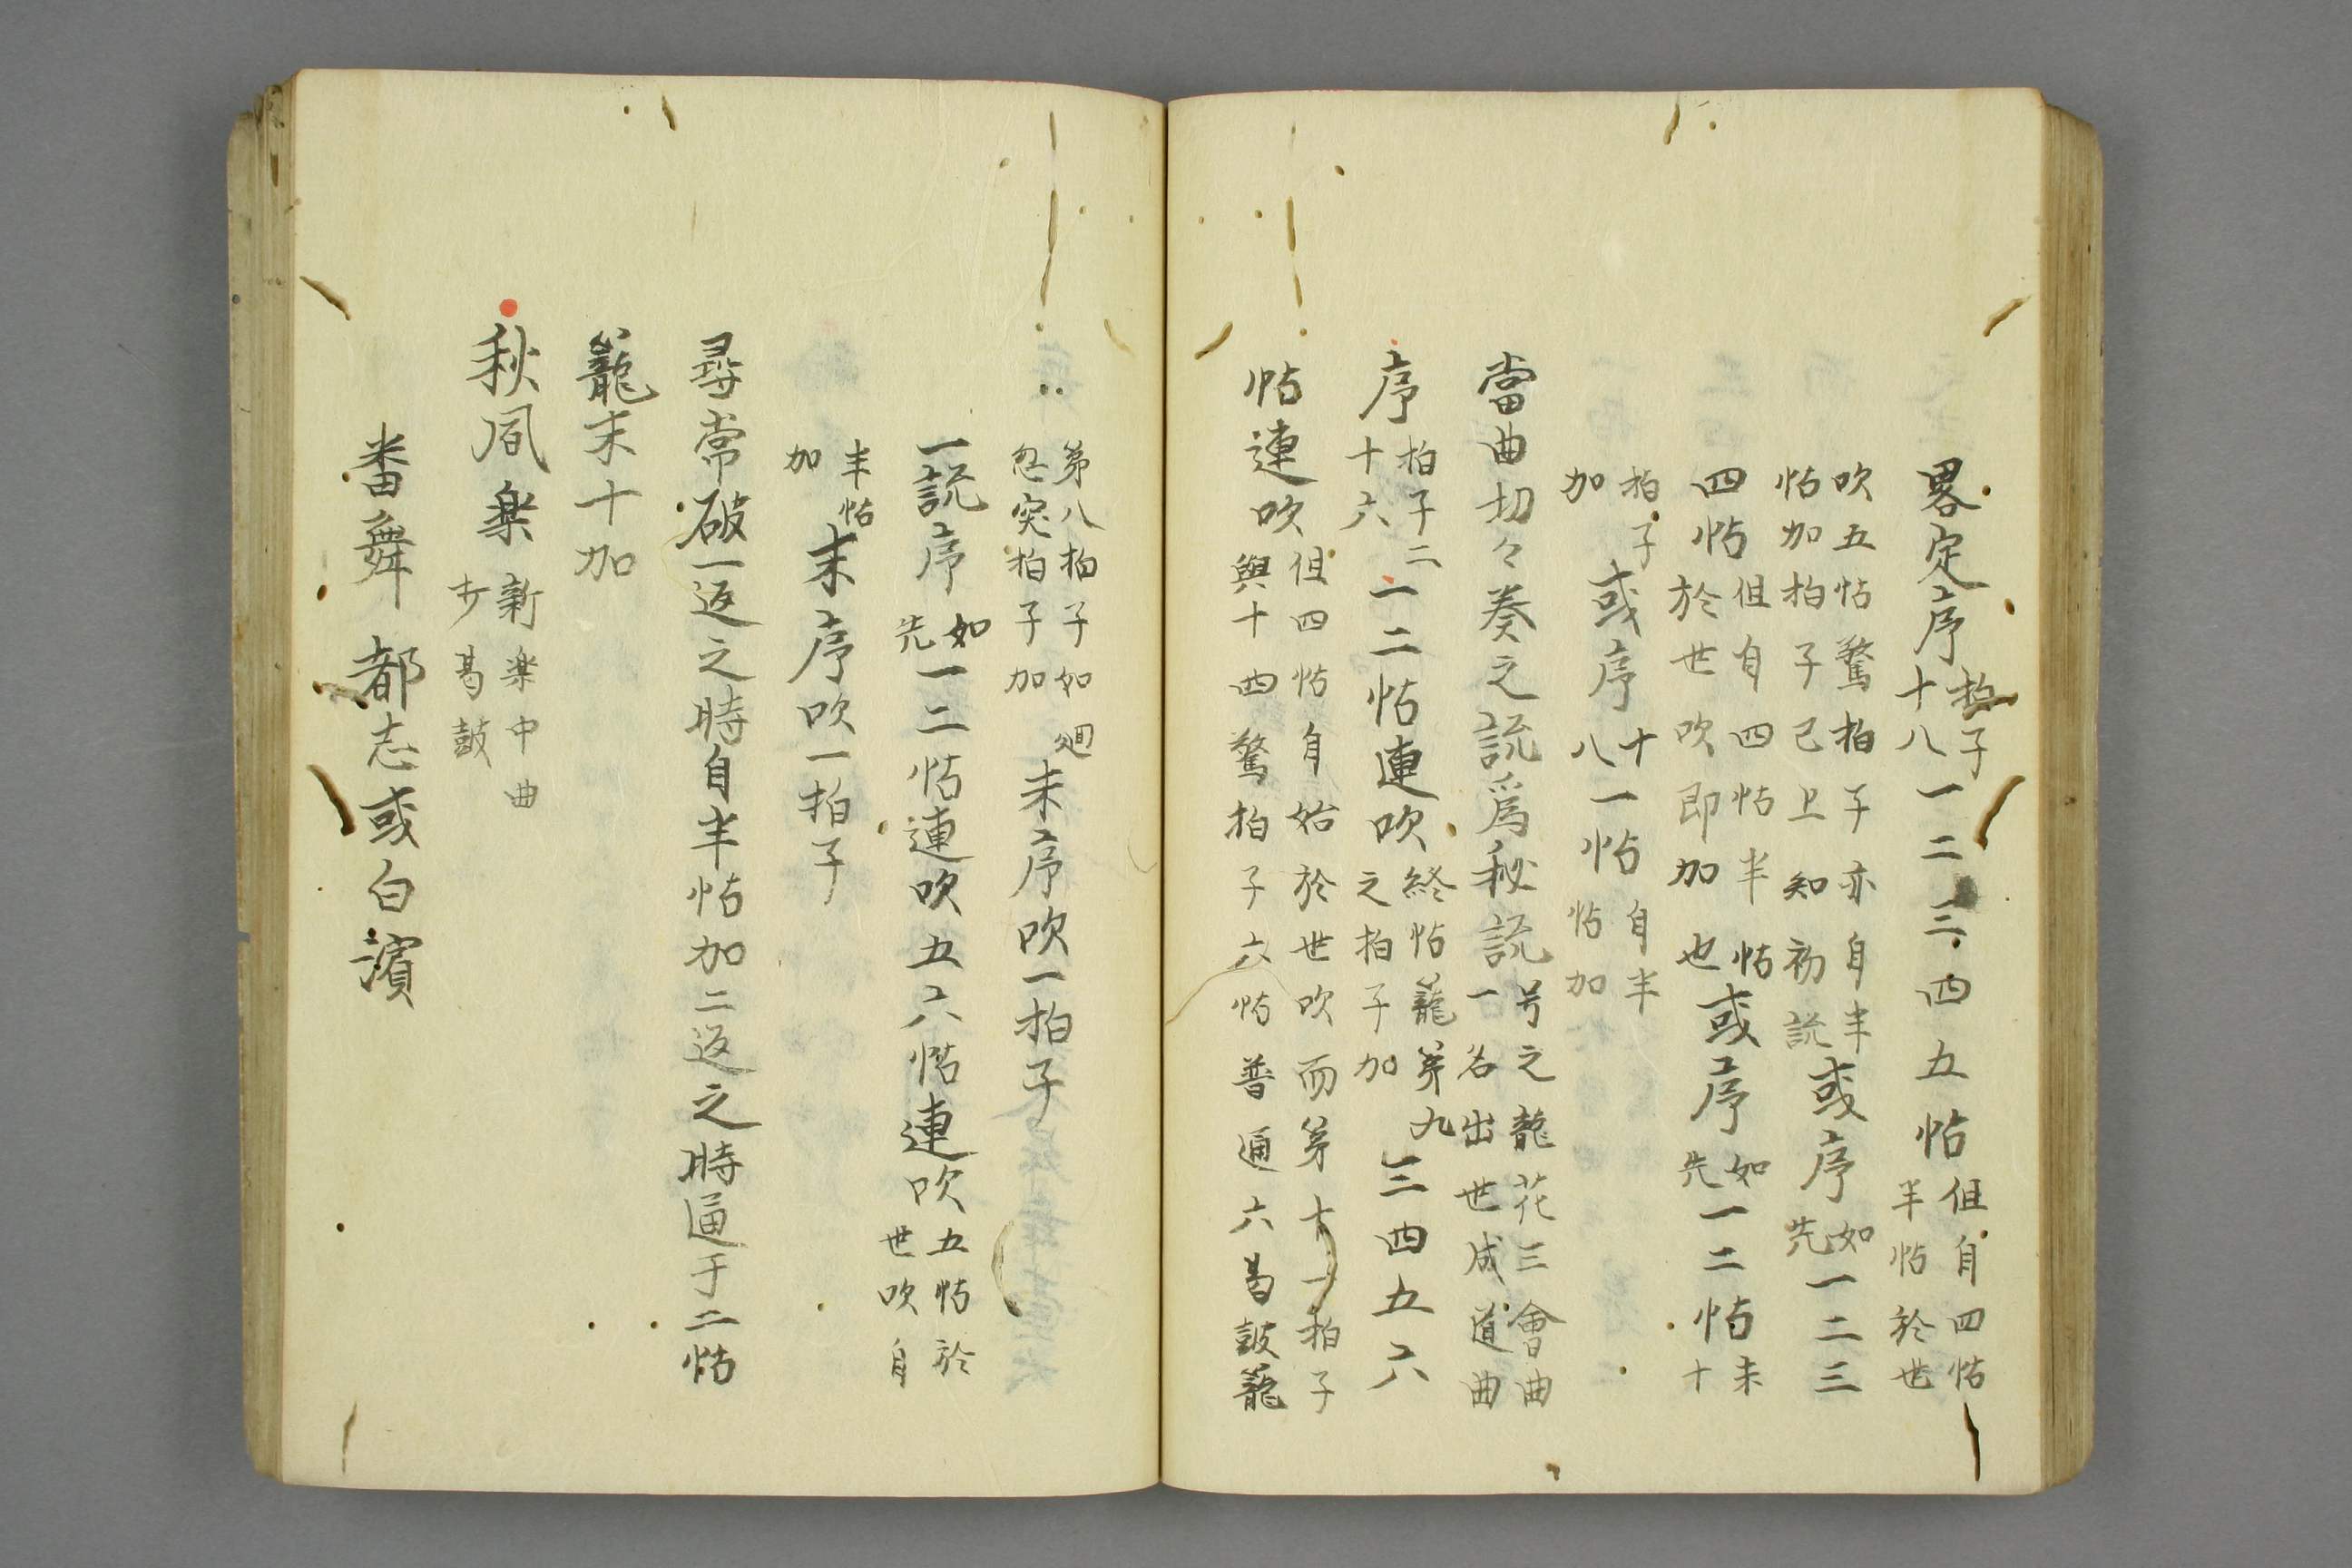 畧定序拍子十八一二三四五帖但自四帖半帖於世
吹五帖驚拍子亦自半帖加拍子已上知初説或序如先一二三
四帖但自四帖半帖於世吹即加也或序如先一二帖末十
拍子加或序十八一帖自半帖加
當曲切々奏之説爲秘説号之龍花三會曲一名出世成道曲
序拍子二十六一二帖連吹終帖籠第九之拍子加三四五六
帖連吹但四帖自始於世吹而第十一拍子與十四驚拍子六帖普通六曷鼓籠
第八拍子如廻忽突拍子加末序吹一拍子
一説序如先一二帖連吹五六帖連吹五帖於世吹自
半帖加末序吹一拍子
尋常破一返之時自半帖加二返之時逼于二帖
籠末十加
秋風楽新楽中曲有曷鼓
番舞都志或白濱